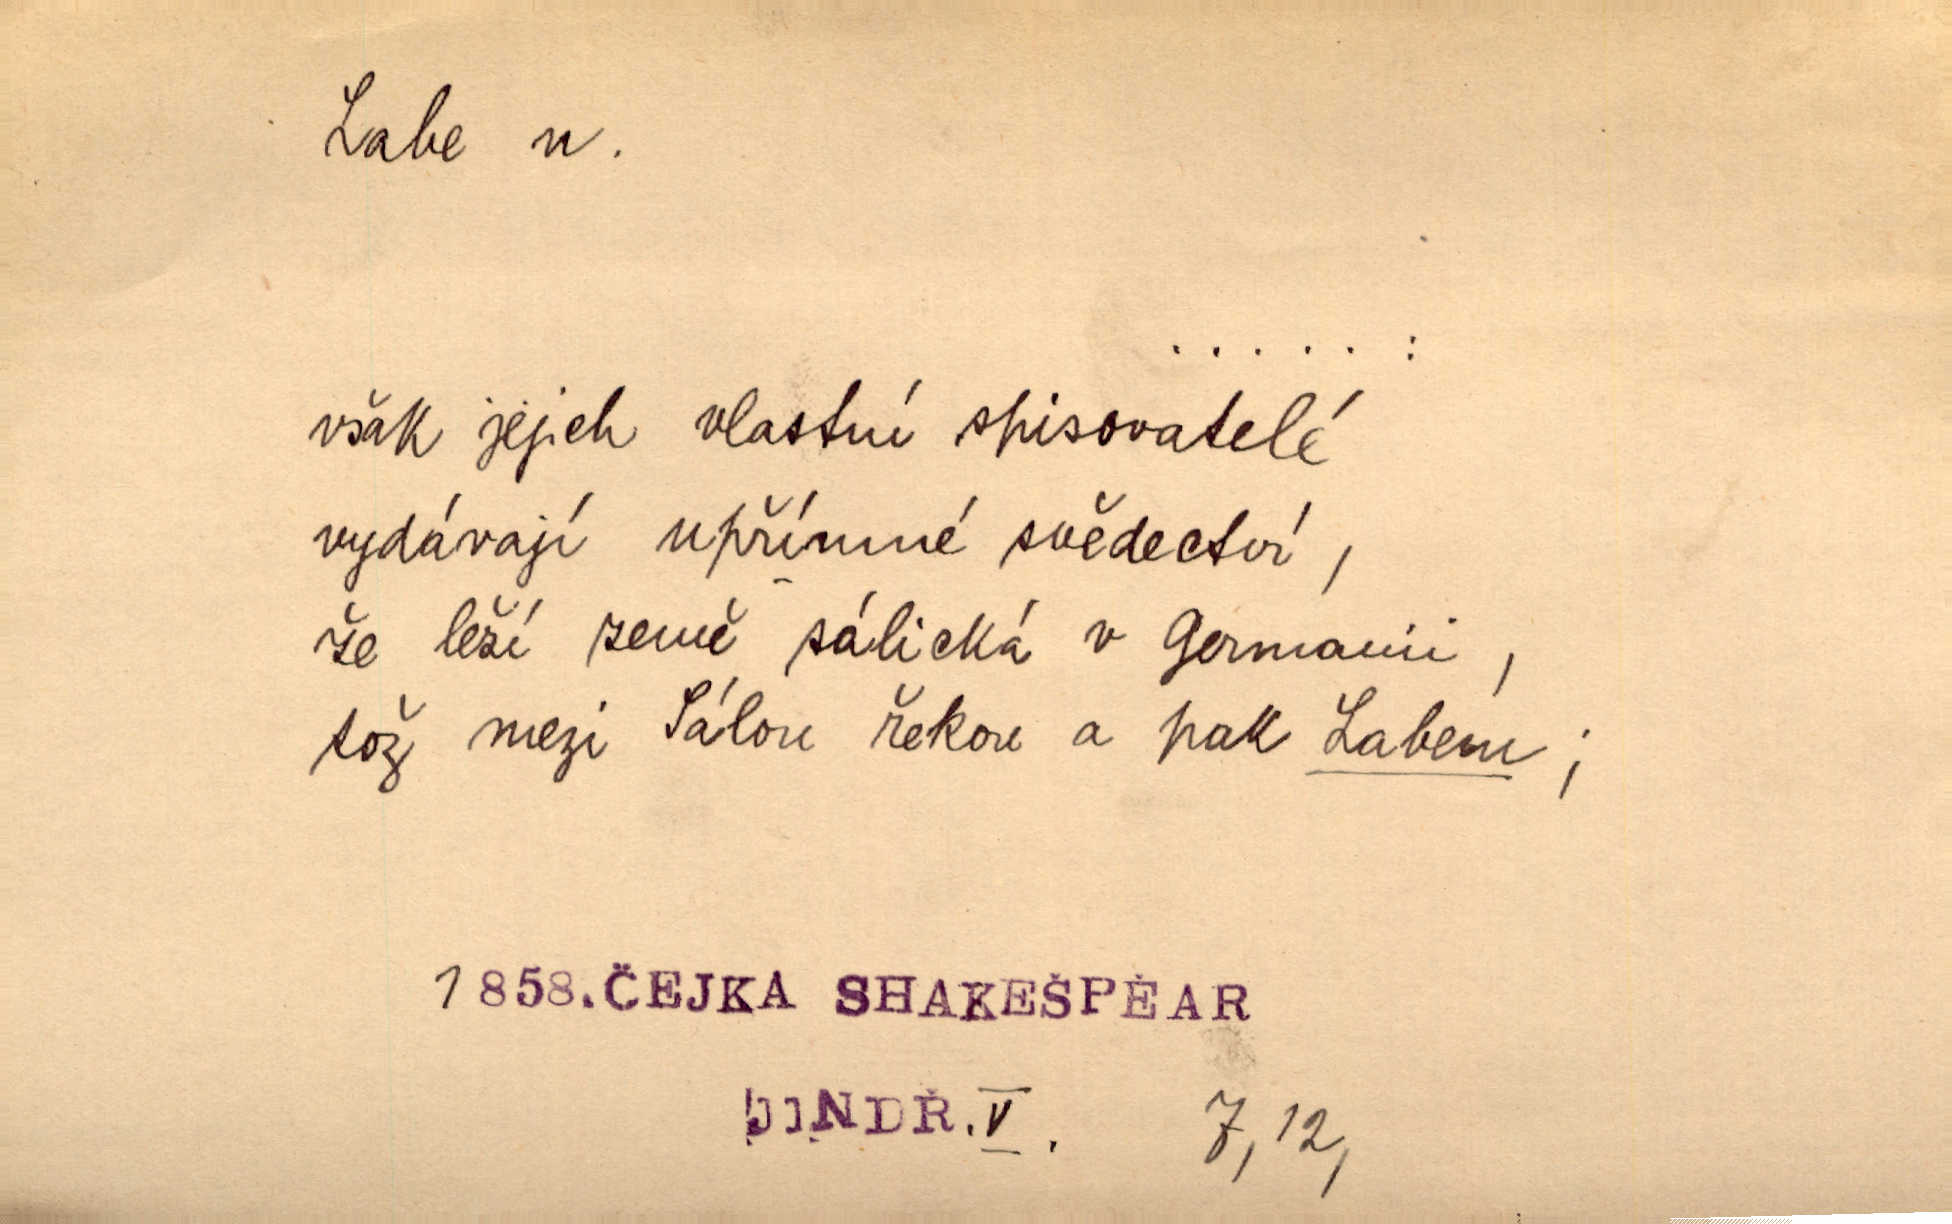 Labe n.
. . . . . :
však jejich vlastní spisovatelé
vydávají upřímné svědectví,
že leží země sálická v Germanii,
tož mezi Sálou řekou a pak Labem;
1858. ČEJKA SHAKEŠPĖAR
JINDŘ. V. 7, 12,